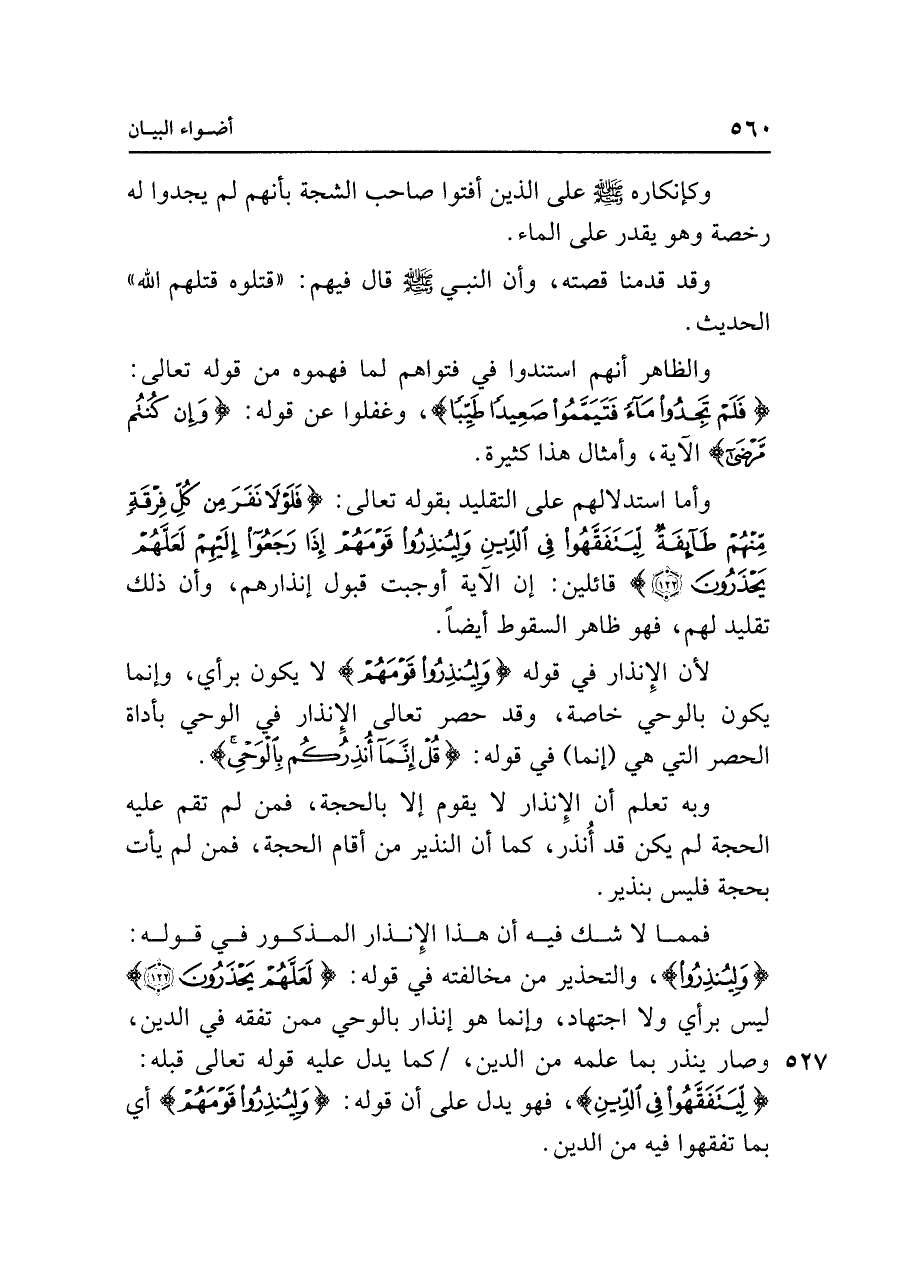 ٥٦٠ أضــواء البيــان
وكإنكاره ﷺ على الذين أفتوا صاحب الشجة بأنهم لم يجدوا له
رخصة وهو يقدر على الماء.
وقد قدمنا قصته، وأن النبـي ﷺ قال فيهم: «قتلوه قتلهم الله»
الحديث.
والظاهر أنهم استندوا في فتواهم لما فهموه من قوله تعالى:
﴿فَلَمْ تَجِدُوا۟ مَآءً فَتَيَمَّمُوا۟ صَعِيدًا طَيِّبًا﴾، وغفلوا عن قوله: ﴿وَإِن كُنتُم
مَّرْضَىٰٓ﴾ الآية، وأمثال هذا كثيرة.
وأما استدلالهم على التقليد بقوله تعالى: ﴿فَلَوْلَا نَفَرَ مِن كُلِّ فِرْقَةٍ
مِّنْهُمْ طَآئِفَةٌ لِّيَتَفَقَّهُوا۟ فِى ٱلدِّينِ وَلِيُنذِرُوا۟ قَوْمَهُمْ إِذَا رَجَعُوٓا۟ إِلَيْهِمْ لَعَلَّهُمْ
يَحْذَرُونَ ۝١٢٢﴾ قائلين: إن الآية أوجبت قبول إنذارهم، وأن ذلك
تقليد لهم، فهو ظاهر السقوط أيضاً.
لأن الإِنذار في قوله ﴿وَلِيُنذِرُوا۟ قَوْمَهُمْ﴾ لا يكون برأي، وإنما
يكون بالوحي خاصة، وقد حصر تعالى الإِنذار في الوحي بأداة
الحصر التي هي (إنما) في قوله: ﴿قُلْ إِنَّمَآ أُنذِرُكُم بِٱلْوَحْىِ ۚ﴾.
وبه تعلم أن الإِنذار لا يقوم إلا بالحجة، فمن لم تقم عليه
الحجة لم يكن قد أُنذر، كما أن النذير من أقام الحجة، فمن لم يأت
بحجة فليس بنذير.
فممــا لا شــك فيــه أن هــذا الإِنــذار المــذكــور فــي قــولــه:
﴿وَلِيُنذِرُوا۟﴾، والتحذير من مخالفته في قوله: ﴿لَعَلَّهُمْ يَحْذَرُونَ ۝١٢٢﴾
ليس برأي ولا اجتهاد، وإنما هو إنذار بالوحي ممن تفقه في الدين،
٥٢٧ وصار ينذر بما علمه من الدين، /كما يدل عليه قوله تعالى قبله:
﴿لِّيَتَفَقَّهُوا۟ فِى ٱلدِّينِ﴾، فهو يدل على أن قوله: ﴿وَلِيُنذِرُوا۟ قَوْمَهُمْ﴾ أي
بما تفقهوا فيه من الدين.